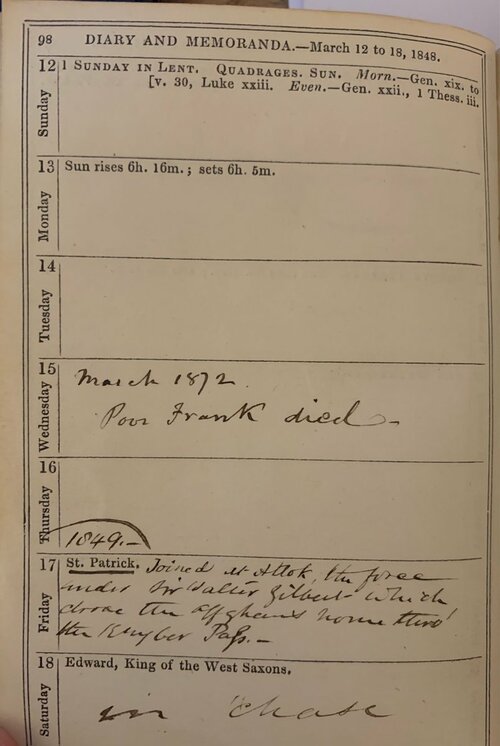 98 DIARY AND MEMORANDA.—March 12 to 18, 1848.
12 Sunday 1 SUNDAY IN LENT. QUADRAGES. SUN. Morn.—Gen. xix. to
[v. 30, Luke xxiii. Even.—Gen. xxii., 1 Thess. iii.
13 Monday Sun rises 6h. 16m.; sets 6h. 5m.
14 Tuesday
15 Wednesday March 1872.
Poor Frank died -
16 Thursday
1849.-
17 Friday St. Patrick. Joined at Attok, the force
under Sir Walter Gilbert which
drove the Affghans home thro'
the Khyber Pass.-
18 Saturday Edward, King of the West Saxons.
in chase